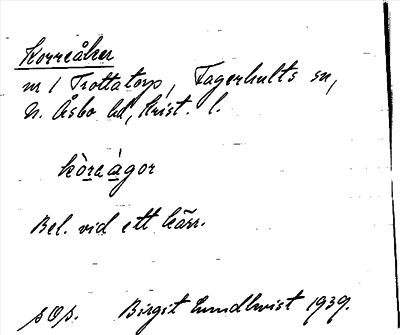 Korreåker
nr 1 Trottatorp, Fagerhults sn,
N. Åsbo hd, Krist. l.
kòreágor
Bel. vid ett kärr.
pOp. Birgit Lundkvist 1939.